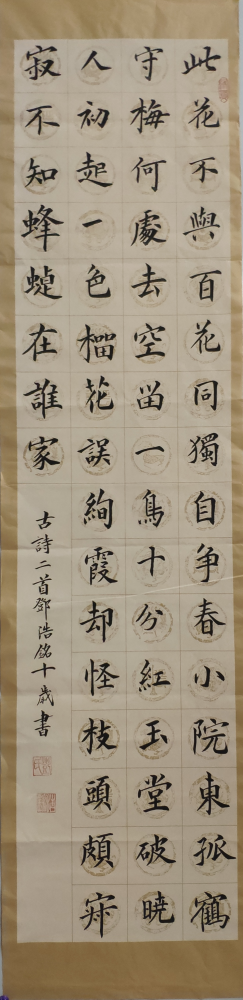 此花不與百花同獨自争春小院東孤鶴
守梅何處去空留一鳥十分紅玉堂破曉
人初起一色榴花誤絢霞却怪枝頭頗
寂不知蜂蝶在誰家
古詩二首鄧浩銘十歲書